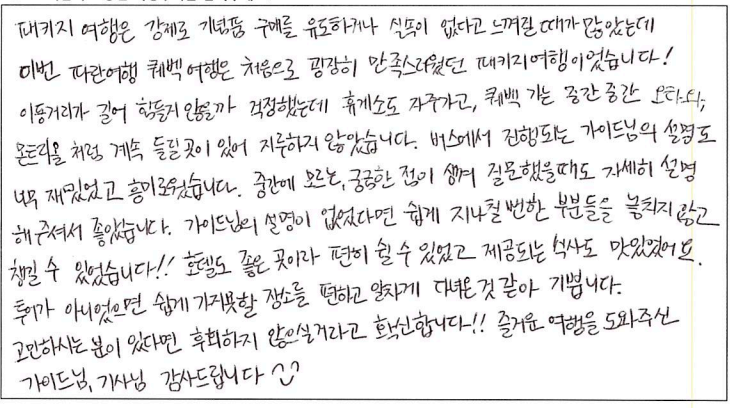 패키지 여행은 강제로 기념품 구매를 유도하거나 실속이 없다고 느껴질때가 많았는데
이번 파란여행 퀘벡여행은 처음으로 굉장히 만족스러웠던 패키지여행이었습니다!
이동거리가 길어 힘들지 않을까 걱정했는데 휴게소도 자주가고, 퀘벡 가는 중간중간 오타와,
몬트리올 처럼 계속 들릴곳이 있어 지루하지 않았습니다. 버스에서 진행되는 가이드님의 설명도
너무 재밌었고 흥미로웠습니다. 중간에 모르는, 궁금한 점이 생겨 질문했을때도 자세히 설명
해주셔서 좋았습니다. 가이드님의 설명이 없었다면 쉽게 지나칠 뻔한 부분들을 놓치지 않고
챙길 수 있었습니다!! 호텔도 좋은 곳이라 편히 쉴 수 있었고 제공되는 식사도 맛있었어요.
투어가 아니었으면 쉽게 가지못할 장소를 편하고 알차게 다녀온것 같아 기쁩니다.
고민하시는 분이 있다면 후회하지 않으실거라고 확신합니다!! 즐거운 여행을 도와주신
가이드님, 기사님 감사드립니다